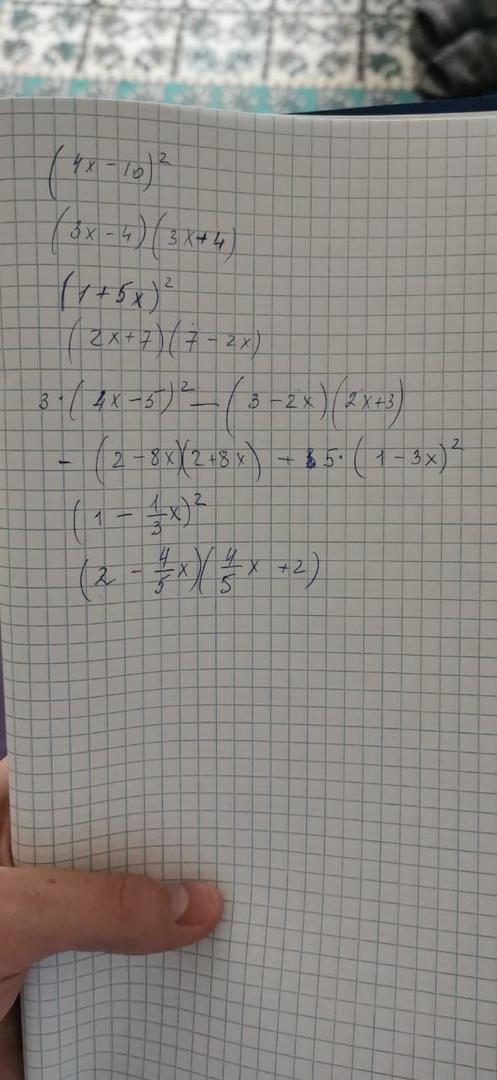 (4x - 10)²
(3x - 4)(3x + 4)
(1 + 5x)²
(2x + 7)(7 - 2x)
3 · (4x - 5)² - (3 - 2x)(2x + 3)
- (2 - 8x)(2 + 8x) + 5 · (1 - 3x)²
(1 - 1/3 x)²
(2 - 4/5 x)(4/5 x + 2)